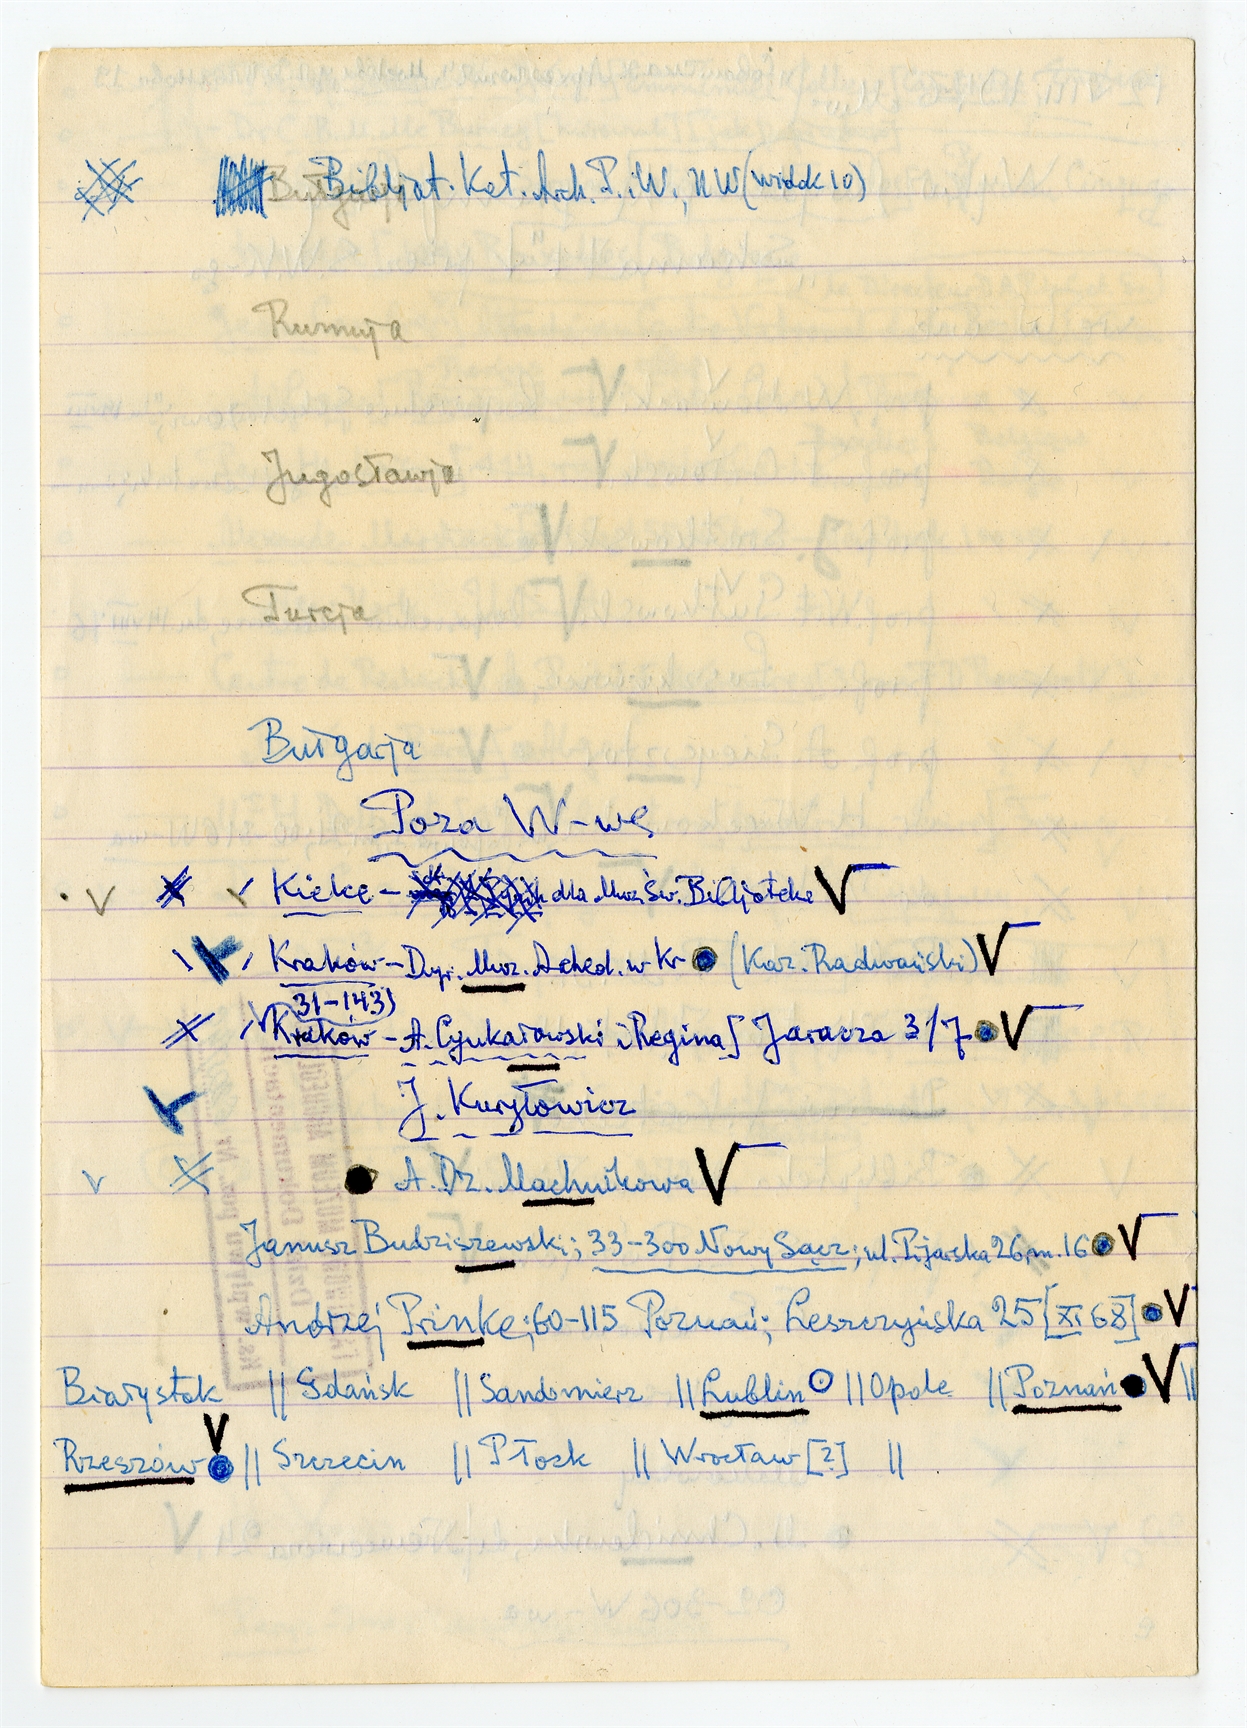 Bibljot. Kat. Arch. P. i W., UW (Widok 10)
Rumuńja
Jugosławja
Turcja
Bułgarja
Poza W-wę
Kielce – dla Muz. Św. Bibljoteka
Kraków – Dyr. Muz. Archeol. w Kr (Kaz. Radwański)
31-143)
Kraków – A. Cynkałowski i Regina] Jaracza 3/7
J. Kuryłowicz
A. Dz. Machnikowa
Janusz Budziszewski; 33-300 Nowy Sącz; ul. Pijarska 26 m. 16
Andrzej Prinke; 60-115 Poznań; Leszczyńska 25 [XI 68]
Białystok || Gdańsk || Sandomierz || Lublin || Opole || Poznań ||
Rzeszów || Szczecin || Płock || Wrocław [?] ||